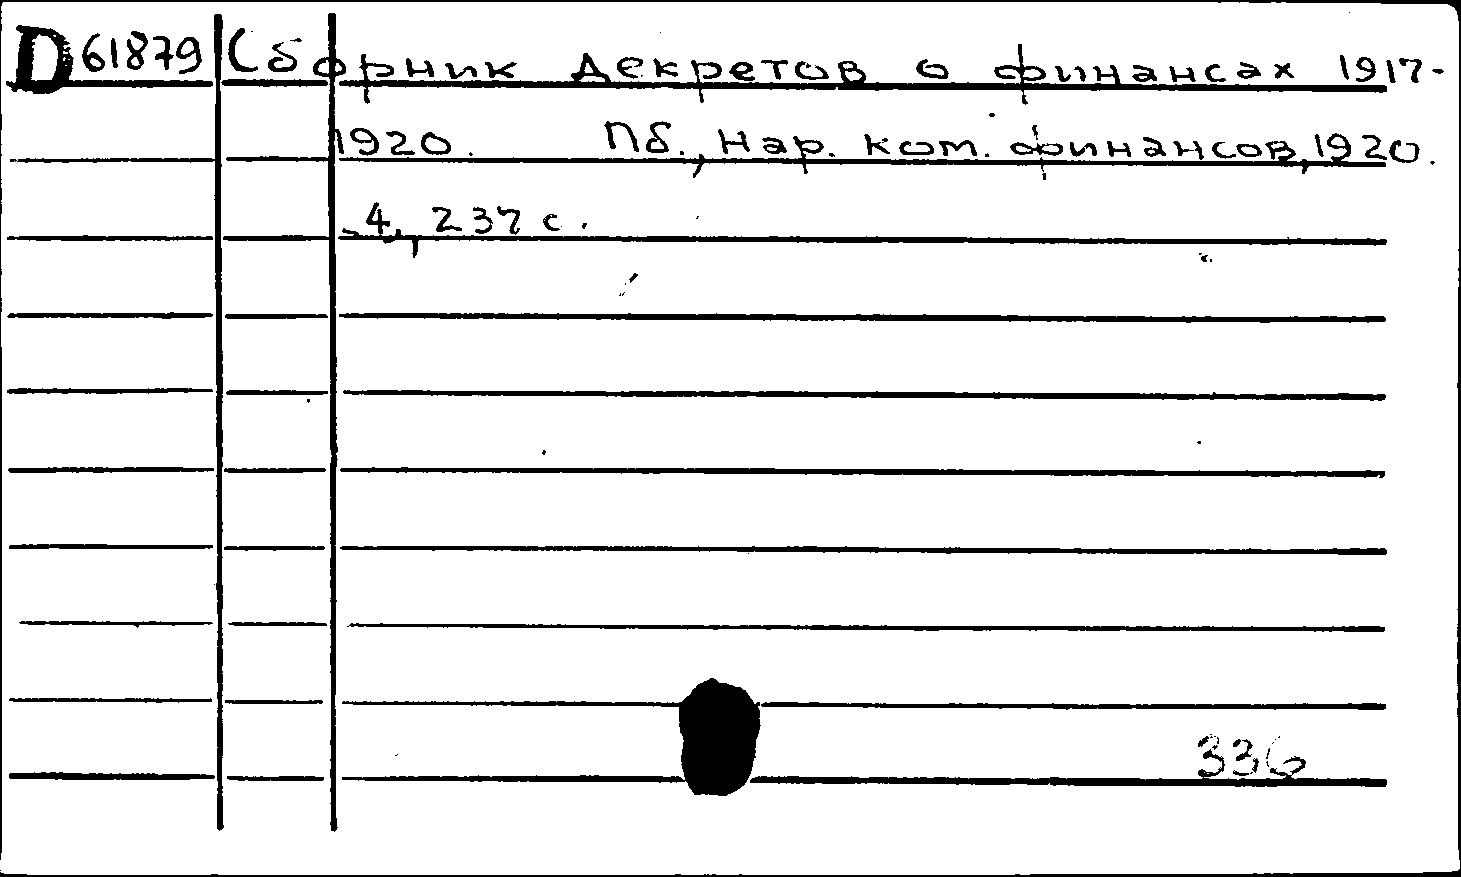 D 61879 Сборник декретов о финансах 1917-
1920. Пб., Нар. ком. финансов, 1920.
4, 237 с.
336